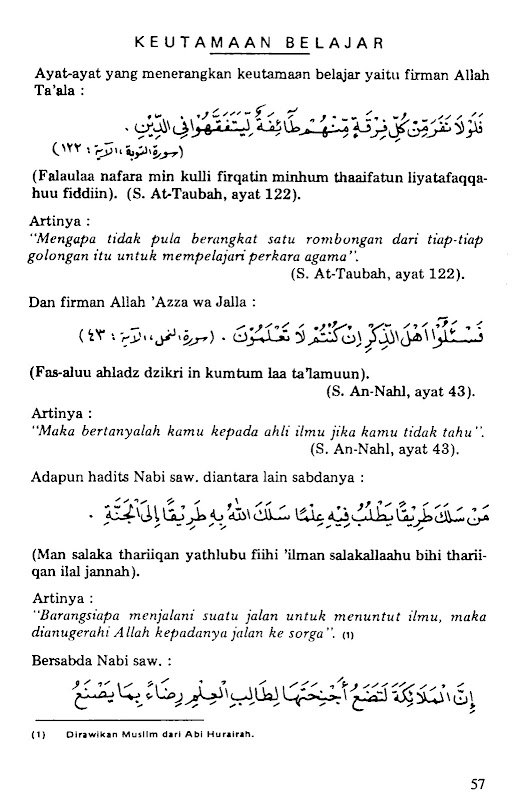 KEUTAMAAN BELAJAR
Ayat-ayat yang menerangkan keutamaan belajar yaitu firman Allah
Ta'ala :
فَلَوْلَا نَفَرَ مِنْ كُلِّ فِرْقَةٍ مِّنْهُمْ طَائِفَةٌ لِّيَتَفَقَّهُوْا فِى الدِّيْنِ .
(سورة التوبة ، الآية : ١٢٢)
(Falaulaa nafara min kulli firqatin minhum thaaifatun liyatafaqqa-
huu fiddiin). (S. At-Taubah, ayat 122).
Artinya :
"Mengapa tidak pula berangkat satu rombongan dari tiap-tiap
golongan itu untuk mempelajari perkara agama".
(S. At-Taubah, ayat 122).
Dan firman Allah 'Azza wa Jalla :
فَسْـَٔلُوْٓا اَهْلَ الذِّكْرِ اِنْ كُنْتُمْ لَا تَعْلَمُوْنَ . (سورة النحل ، الآية : ٤٣)
(Fas-aluu ahladz dzikri in kumtum laa ta'lamuun).
(S. An-Nahl, ayat 43).
Artinya :
"Maka bertanyalah kamu kepada ahli ilmu jika kamu tidak tahu".
(S. An-Nahl, ayat 43).
Adapun hadits Nabi saw. diantara lain sabdanya :
مَنْ سَلَكَ طَرِيْقًا يَطْلُبُ فِيْهِ عِلْمًا سَلَكَ اللّٰهُ بِهِ طَرِيْقًا اِلَى الْجَنَّةِ .
(Man salaka thariiqan yathlubu fiihi 'ilman salakallaahu bihi tharii-
qan ilal jannah).
Artinya :
"Barangsiapa menjalani suatu jalan untuk menuntut ilmu, maka
dianugerahi Allah kepadanya jalan ke sorga". (1)
Bersabda Nabi saw. :
اِنَّ الْمَلَائِكَةَ لَتَضَعُ أَجْنِحَتَهَا لِطَالِبِ الْعِلْمِ رِضَاءً بِمَا يَصْنَعُ
(1) Dirawikan Muslim dari Abi Hurairah.
57